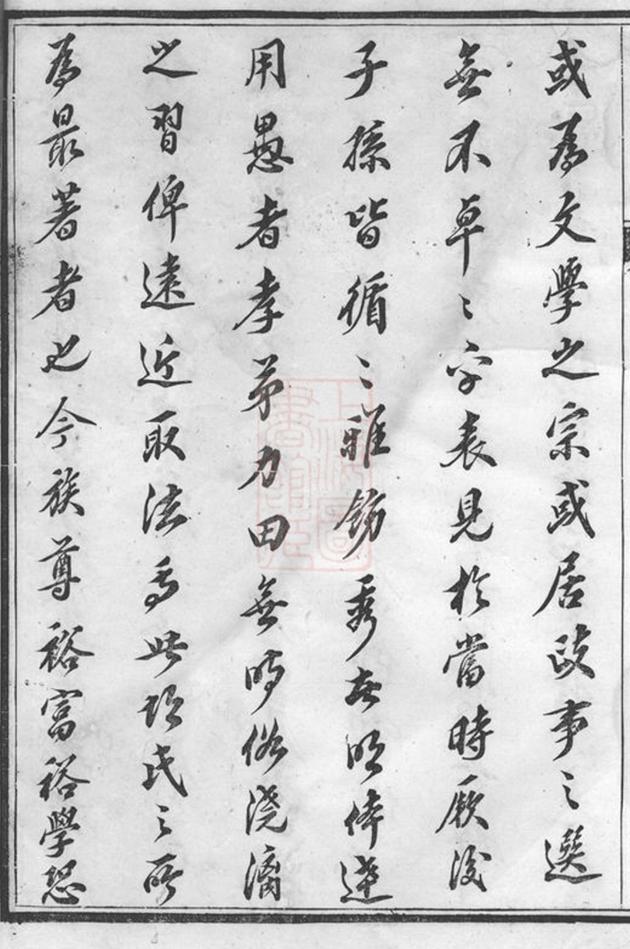 或為文學之宗或居政事之選
無不卓〻乎表見於當時厥後
子孫皆循〻雅飭秀者明体達
用愚者孝弟力田無時俗澆漓
之習俾遠近取法焉此項氏之所
為最著者也今族尊裕富裕學恐
上海圖
書館藏